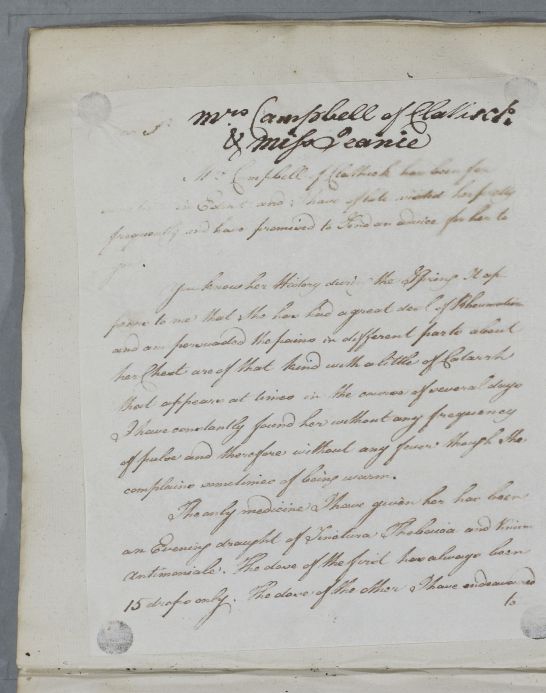 Mrs Campbell of Clattisck.
& Miss Jeanie
Mrs Campbell of Clattick has been for
in Edinr and I have of late visited her pretty
frequently and have promised to send an advice for her to
you
You know her History during the Spring It ap
pears to me that she has had a great deal of Rheumatism
and am persuaded the pains in different parts about
her Chest are of that kind with a little of Catarrh
that appears at times in the course of several days
I have constantly found her without any frequency
of pulse and therefore without any fever though She
complains sometimes of being warm.
The only medicine I have given her has been
an Evening draught of Tinctura Thebaica and Vinum
Antimoniale. The dose of the first has always been
15 drops only. The dose of the other I have endeavoured
to